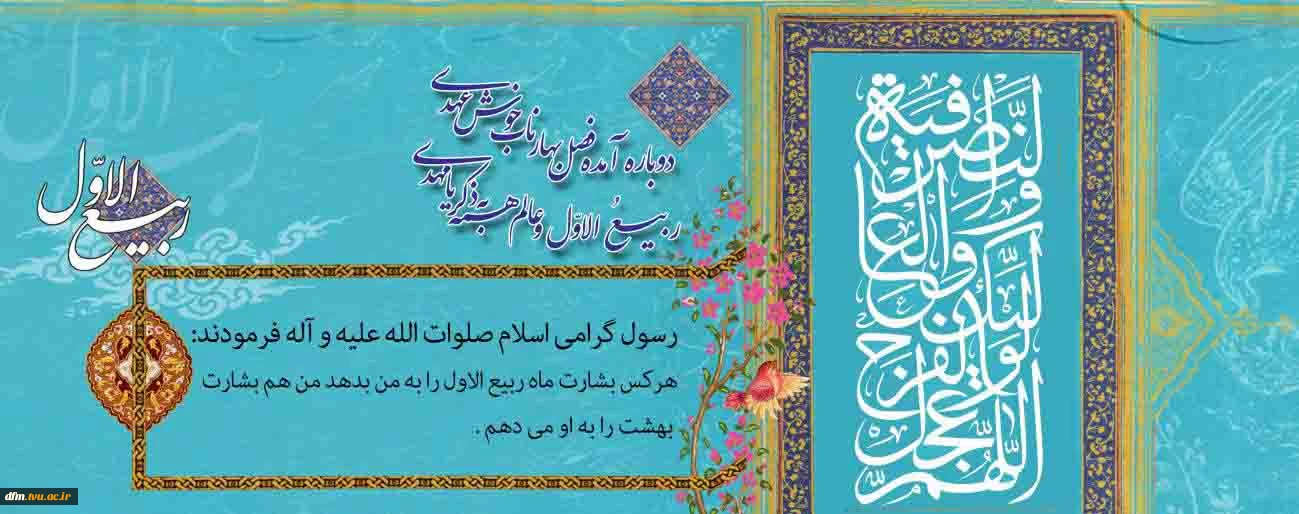 دوباره آمده فصل بهار ناب خوش عهدی
ربیعُ الاوّل و عالم همه به ذکر یا مهدی
ربیع الاوّل
رسول گرامی اسلام صلوات الله علیه و آله فرمودند:
هر کس بشارت ماه ربیع الاول را به من بدهد من هم بشارت
بهشت را به او می دهم .
اللهم عجّل لولیّک الفرج
والعافیة والنّصر
dfm.tvu.ac.ir